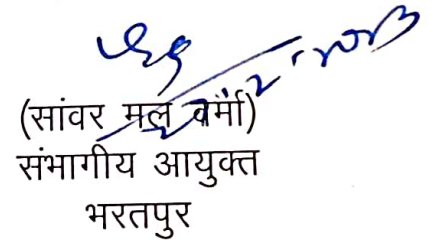 (सांवर मल वर्मा)
संभागीय आयुक्त
भरतपुर